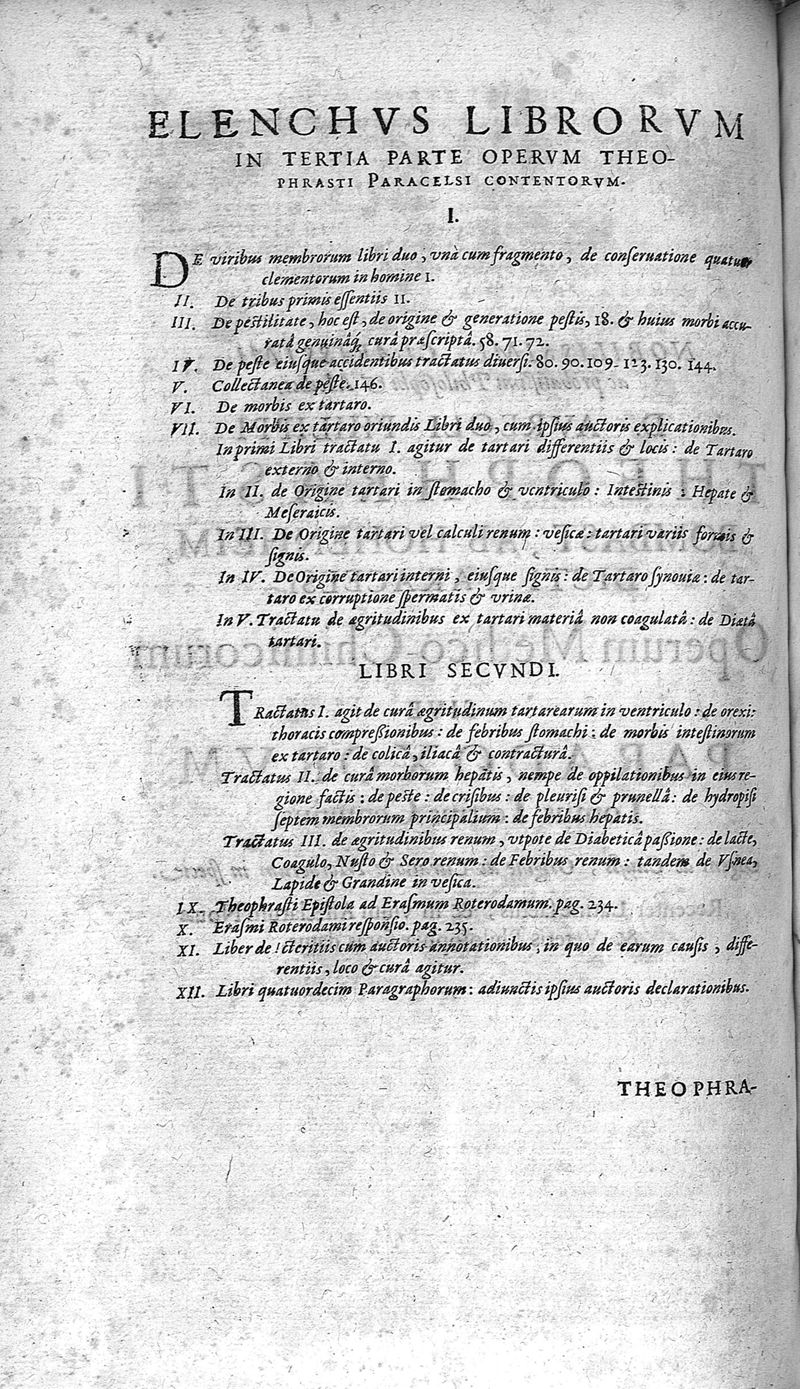 ELENCHVS LIBRORVM
IN TERTIA PARTE OPERVM THEO-
PHRASTI PARACELSI CONTENTORVM.
I.
DE viribus membrorum libri duo, vnà cum fragmento, de conseruatione quatuor
elementorum in homine 1.
II. De tribus primis essentiis 11.
III. De pestilitate, hoc est, de origine & generatione pestis, 18. & huius morbi accu-
ratâ genuinâq́, curâ præscriptâ. 58. 71. 72.
IV. De peste eiusque accidentibus tractatus diuersi. 80. 90. 109. 123. 130. 144.
V. Collectanea de peste. 146.
VI. De morbis ex tartaro.
VII. De Morbis ex tartaro oriundis Libri duo, cum ipsius auctoris explicationibus.
In primi Libri tractatu I. agitur de tartari differentiis & locis: de Tartaro
externo & interno.
In II. de Origine tartari in stomacho & ventriculo: Intestinis: Hepate &
Meseraicis.
In III. De Origine tartari vel calculi renum: vesicæ: tartari variis formis &
signis.
In IV. De Origine tartari interni, eiusque signis: de Tartaro synouiæ: de tar-
taro ex corruptione spermatis & vrinæ.
In V. Tractatu de ægritudinibus ex tartari materiâ non coagulatâ: de Diætâ
tartari.
LIBRI SECVNDI.
TRactatus I. agit de curâ ægritudinum tartarearum in ventriculo: de orexi:
thoracis compreßionibus: de febribus stomachi: de morbis intestinorum
ex tartaro: de colicâ, iliacâ & contracturâ.
Tractatus II. de curâ morborum hepatis, nempe de oppilationibus in eius re-
gione factis: de peste: de crisibus: de pleurisi & prunellâ: de hydropisi
septem membrorum principalium: de febribus hepatis.
Tractatus III. de ægritudinibus renum, vtpote de Diabeticâ paßione: de lacte,
Coagulo, Nusto & Sero renum: de Febribus renum: tandem de Vsnea,
Lapide & Grandine in vesica.
IX. Theophrasti Epistola ad Erasmum Roterodamum. pag. 234.
X. Erasmi Roterodami responsio. pag. 235.
XI. Liber de Icteritiis cum auctoris annotationibus, in quo de earum causis, diffe-
rentiis, loco & curâ agitur.
XII. Libri quatuordecim Paragraphorum: adiunctis ipsius auctoris declarationibus.
THEOPHRA-